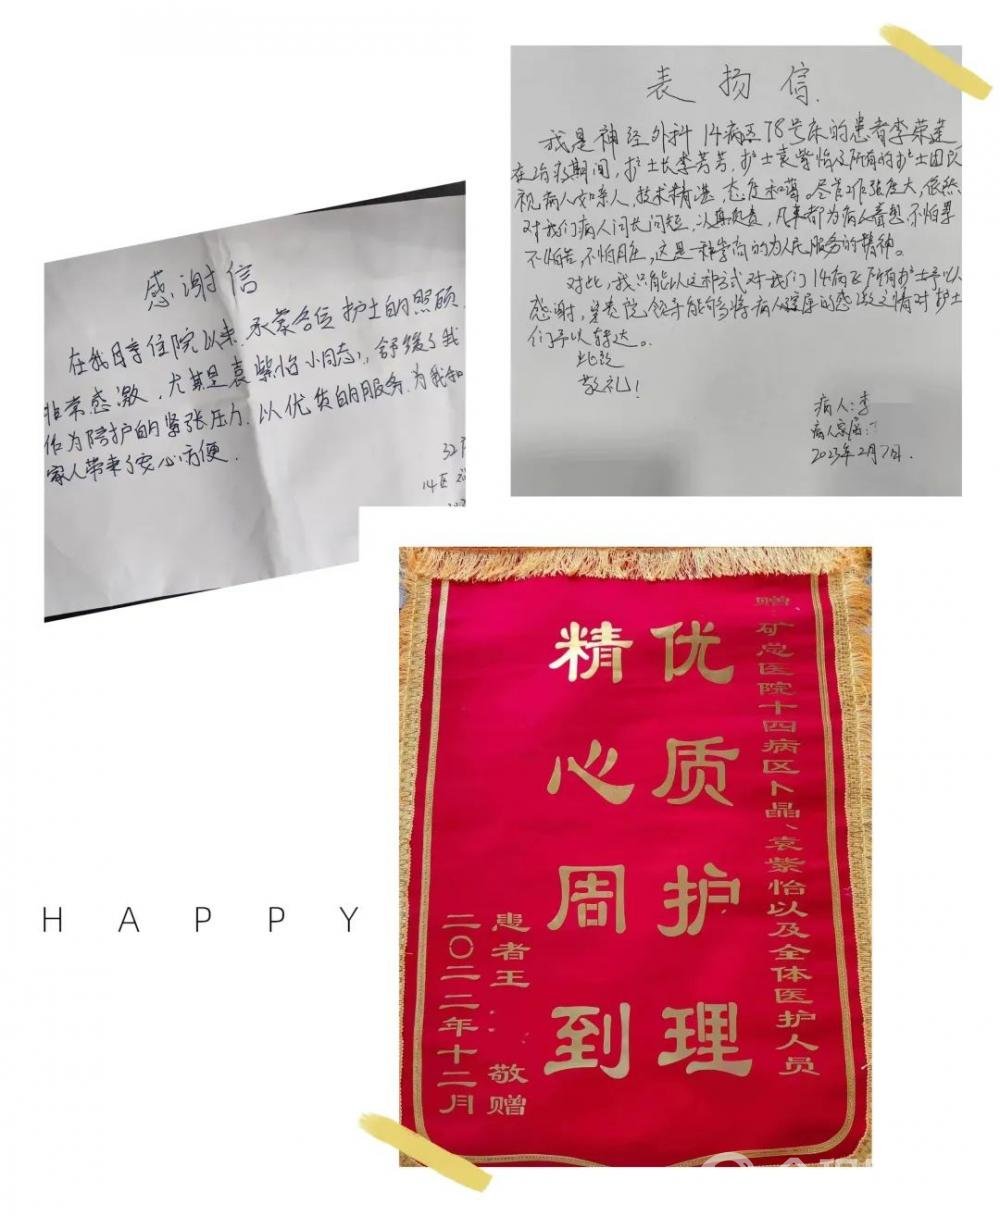 感谢信
在我母亲住院以来,承蒙各位护士的照顾
非常感激,尤其是袁紫怡小同志,舒缓了我
作为陪护的紧张压力,以优质的服务,为我和
家人带来了安心方便.
14区
表扬信.
我是神经外科14病区78号床的患者李荣莲
在治疗期间,护士长李芳芳,护士袁紫怡及所有的护士团队
视病人如亲人,技术精湛,态度和蔼。尽管工作强度大,依然
对我们病人问长问短,认真负责,凡事都为病人着想,不怕累
不怕苦,不怕脏,这是一种崇高的为人民服务的精神。
对此,我只能以这种方式对我们14病区所有护士予以
感谢,望贵院领导能够将病人深厚的感激之情对护士
们予以转达。
此致
敬礼!
病人:李
病人家属:
2023年2月7日.
赠:矿总医院十四病区卜晶、袁紫怡以及全体医护人员
优质护理
精心周到
患者王 敬赠
二〇二二年十二月
HAPPY